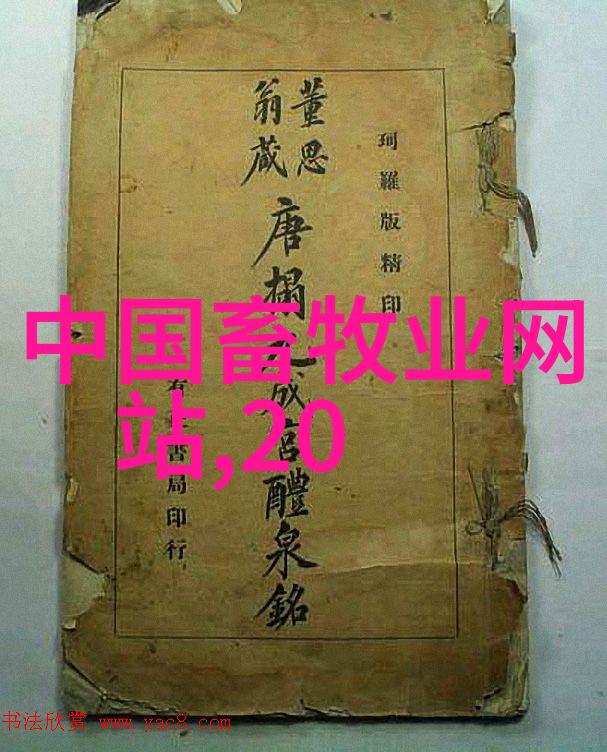 珂羅版精印
董思
翁藏
唐搨成宮醴泉銘
有書局印行
中国畜牧业网
站,20
书法欣赏 www.yac8.com